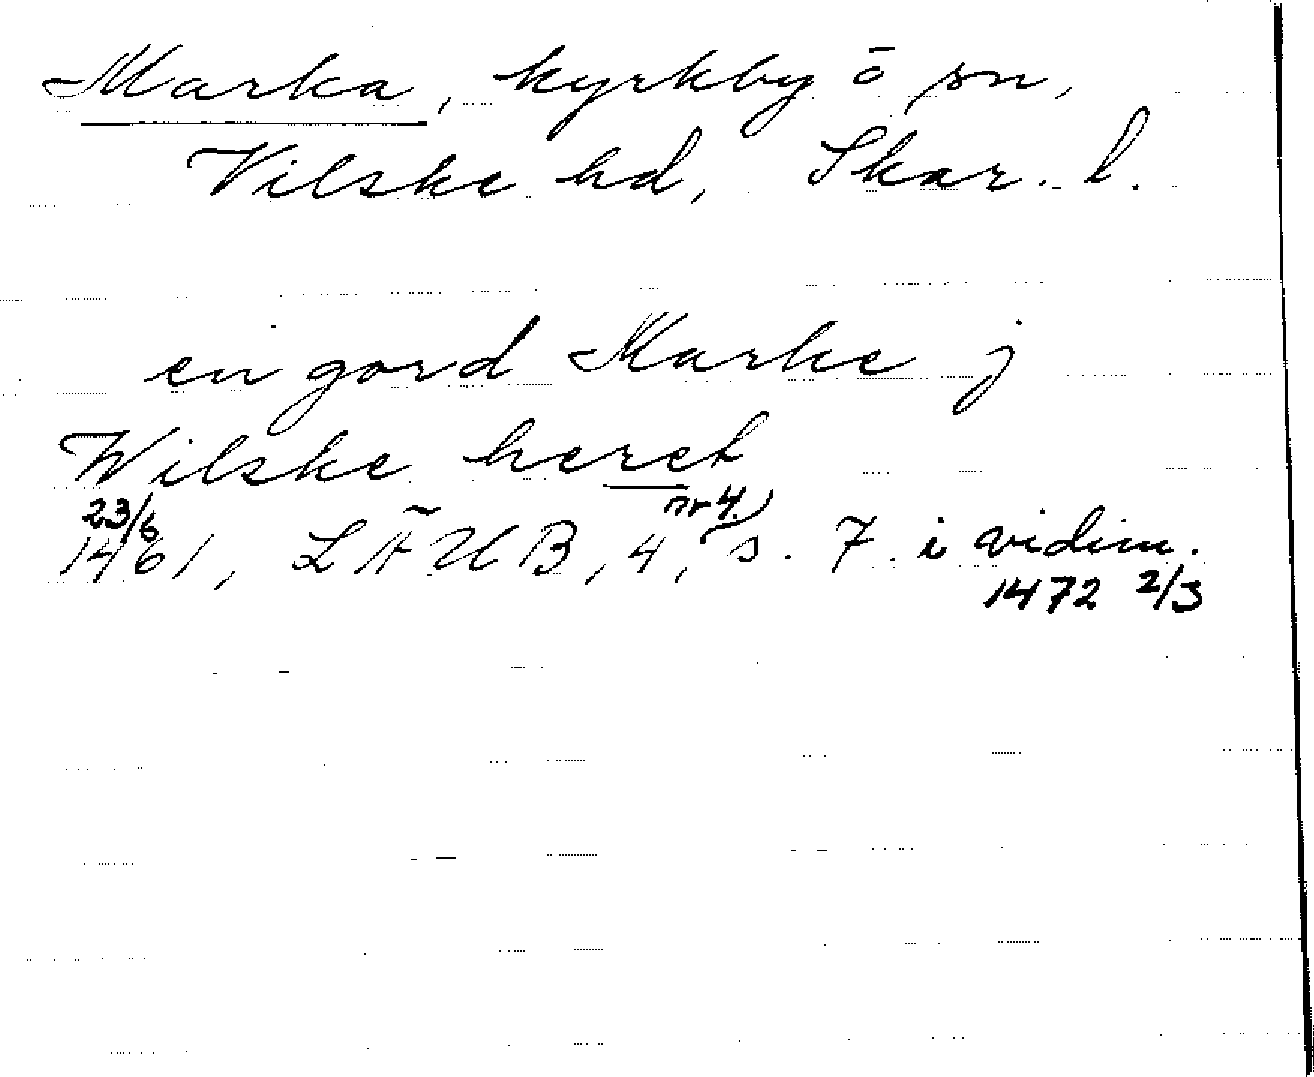 Marka, kyrkby o sn,
Vilske hd, Skar. l.
en gord Marke j
Wilske heret
23/6 nr 4.
1461, LÄUB, 4, s. 7 i vidim.
1472 2/3